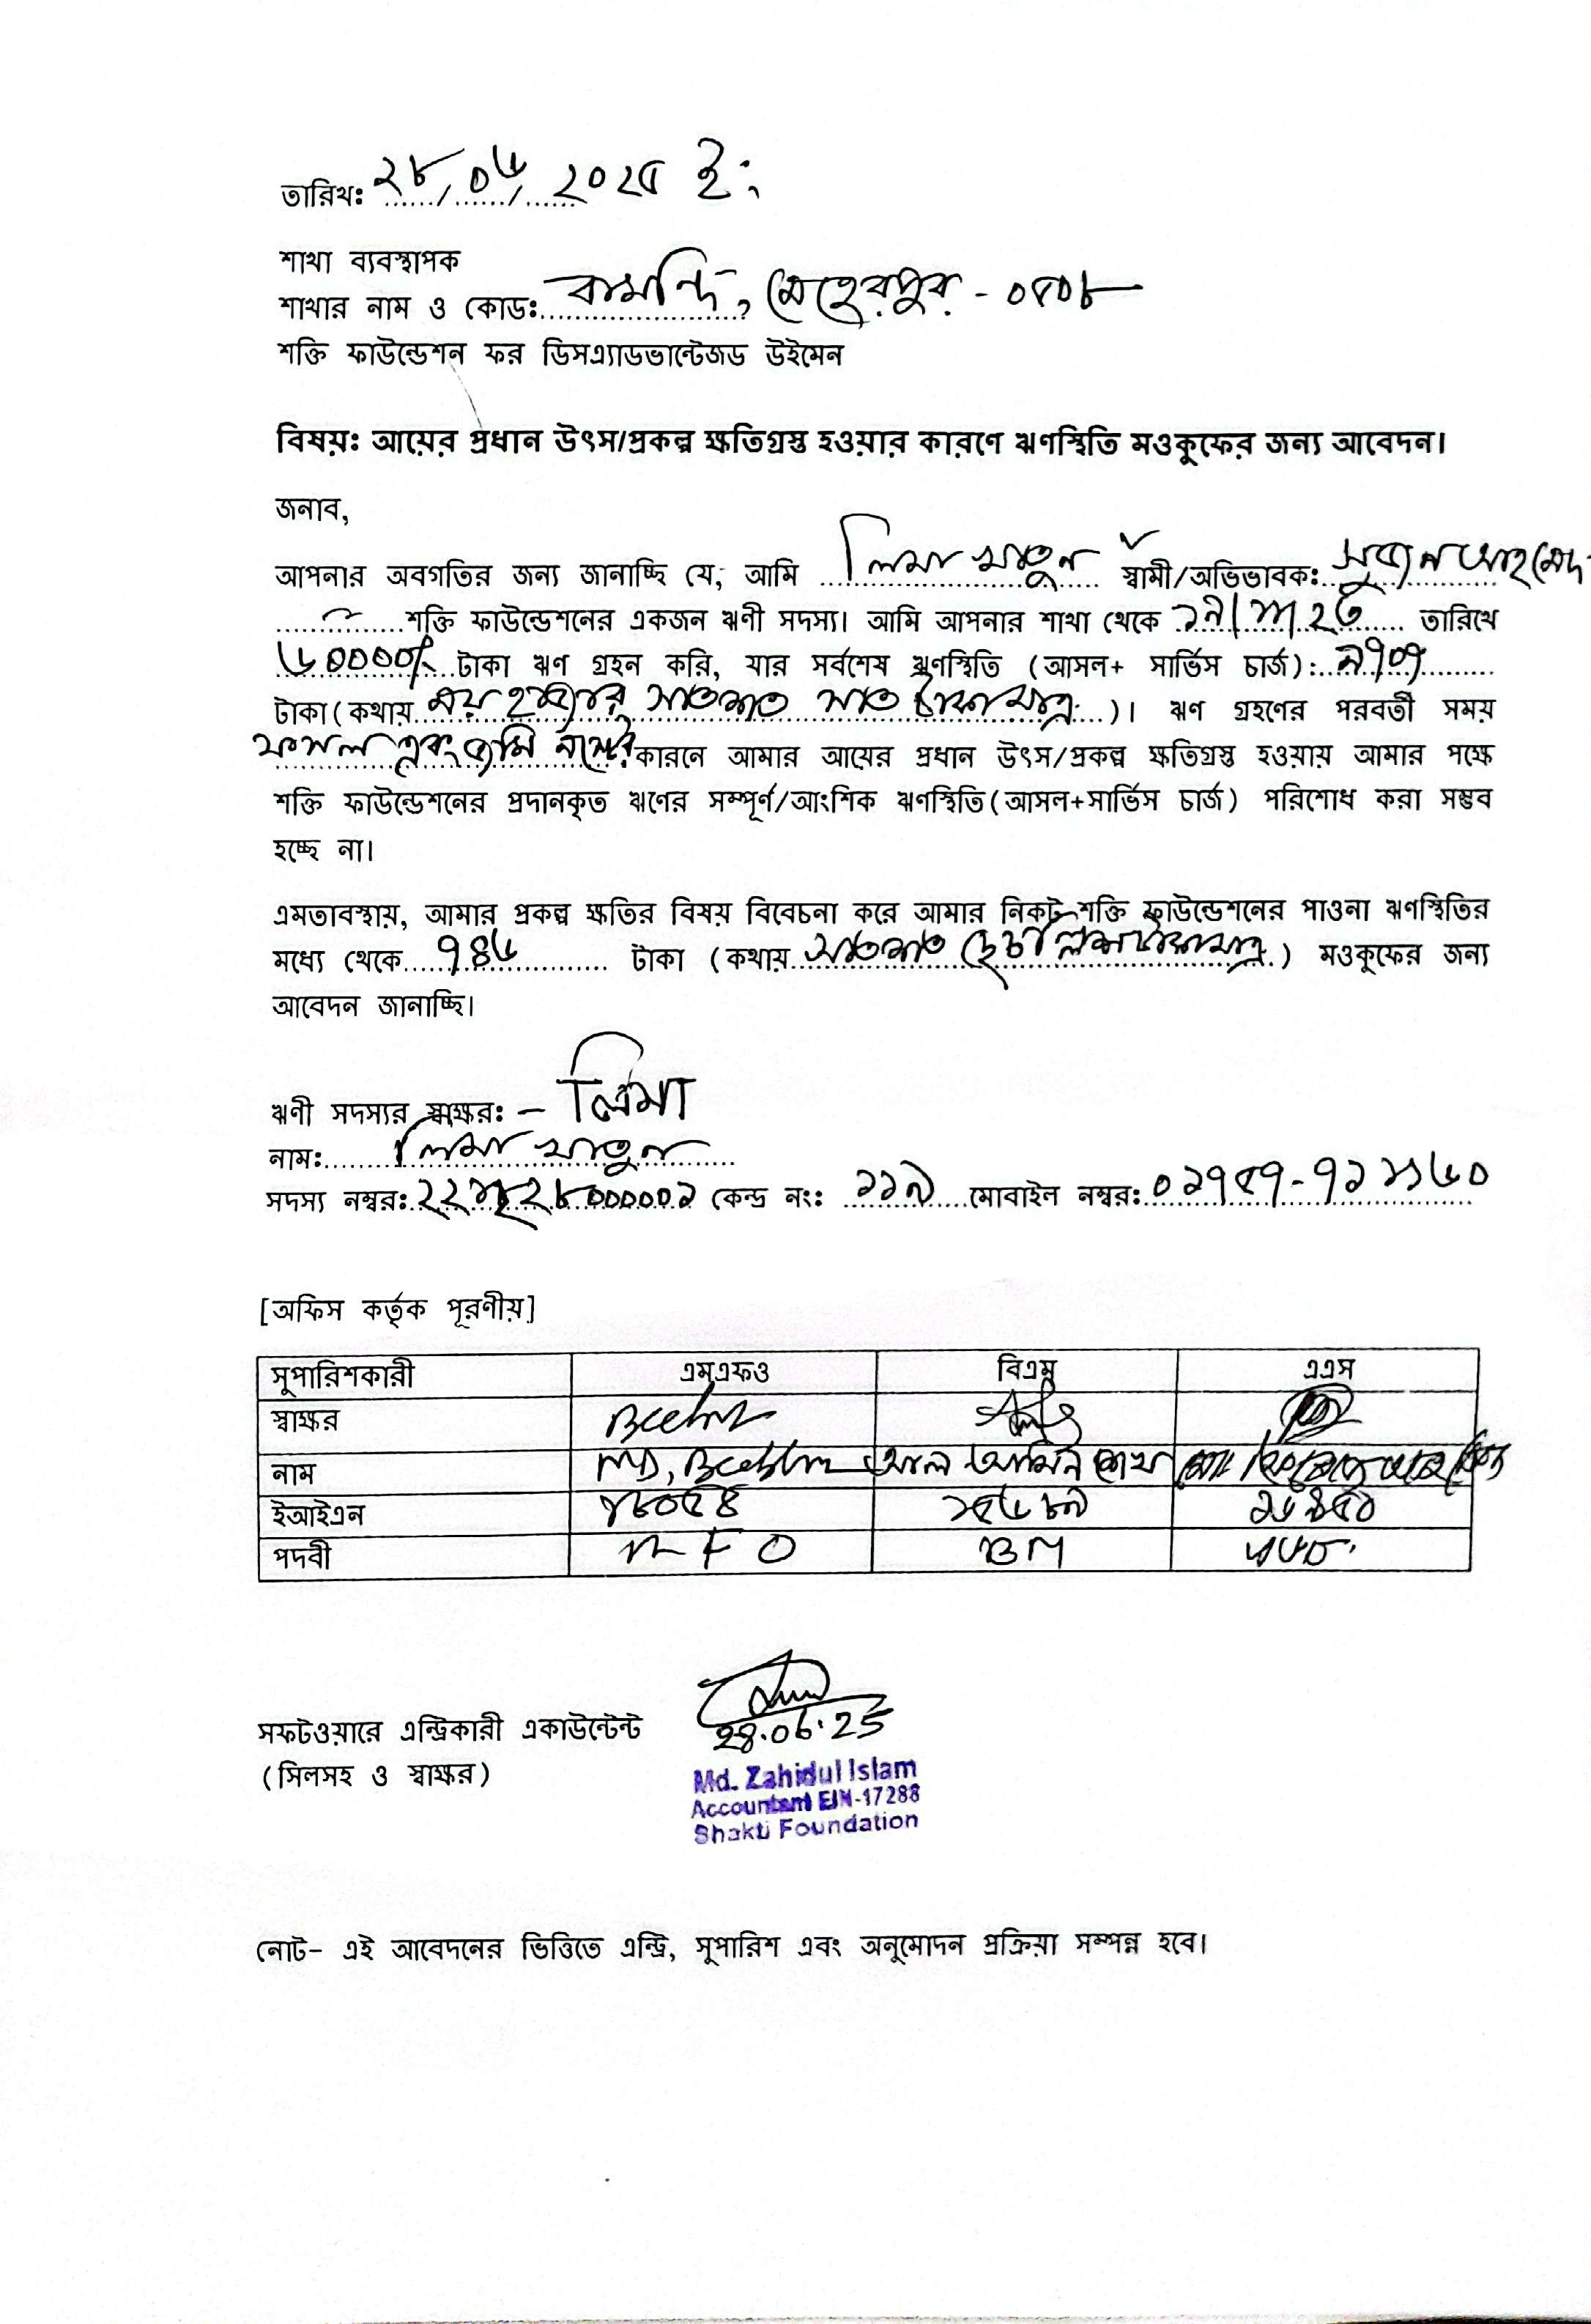 তারিখঃ ২৮/০৬/২০২৫ ইং
শাখা ব্যবস্থাপক
শাখার নাম ও কোডঃ বামন্দি, মেহেরপুর - ০৫০৮
শক্তি ফাউন্ডেশন ফর ডিসএ্যাডভান্টেজড উইমেন
বিষয়ঃ আয়ের প্রধান উৎস/প্রকল্প ক্ষতিগ্রস্ত হওয়ার কারণে ঋণস্থিতি মওকুফের জন্য আবেদন।
জনাব,
আপনার অবগতির জন্য জানাচ্ছি যে, আমি লিমা খাতুন স্বামী/অভিভাবক: সুজন আহমেদ
শক্তি ফাউন্ডেশনের একজন ঋণী সদস্য। আমি আপনার শাখা থেকে তারিখে
৬০০০০/- টাকা ঋণ গ্রহন করি, যার সর্বশেষ ঋণস্থিতি (আসল+ সার্ভিস চার্জ): ৯৭০৭
টাকা(কথায় নয় হাজার সাতশত সাত টাকা মাত্র)। ঋণ গ্রহণের পরবর্তী সময়
ফসল এবং জমি নষ্টের কারনে আমার আয়ের প্রধান উৎস/প্রকল্প ক্ষতিগ্রস্ত হওয়ায় আমার পক্ষে
শক্তি ফাউন্ডেশনের প্রদানকৃত ঋণের সম্পূর্ণ/আংশিক ঋণস্থিতি(আসল+সার্ভিস চার্জ) পরিশোধ করা সম্ভব
হচ্ছে না।
এমতাবস্থায়, আমার প্রকল্প ক্ষতির বিষয় বিবেচনা করে আমার নিকট শক্তি ফাউন্ডেশনের পাওনা ঋণস্থিতির
মধ্যে থেকে ৭৪৬ টাকা (কথায় সাতশত ছেচল্লিশ টাকা মাত্র) মওকুফের জন্য
আবেদন জানাচ্ছি।
ঋণী সদস্যর স্বাক্ষর: - লিমা
নাম: লিমা খাতুন
সদস্য নম্বর: কেন্দ্র নং: ১১৯ মোবাইল নম্বর:
[অফিস কর্তৃক পূরণীয়]
সুপারিশকারী এমএফও বিএম এএস
স্বাক্ষর
নাম MD. আল আমিন শেখ
ইআইএন ১৫৬৮৯
পদবী MFO BM
সফটওয়ারে এন্ট্রিকারী একাউন্টেন্ট
(সিলসহ ও স্বাক্ষর)
28.06.25
Md. Zahidul Islam
Accountant EIN-17288
Shakti Foundation
নোট- এই আবেদনের ভিত্তিতে এন্ট্রি, সুপারিশ এবং অনুমোদন প্রক্রিয়া সম্পন্ন হবে।